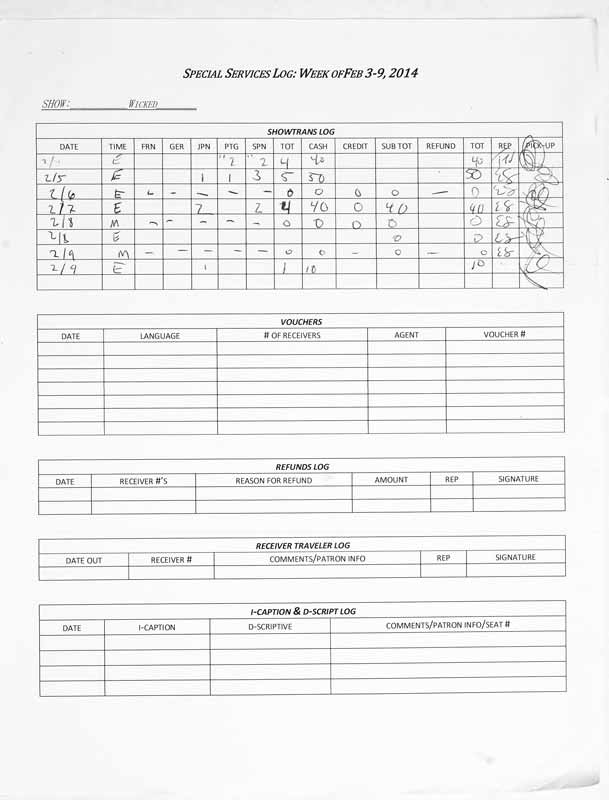 SPECIAL SERVICES LOG: WEEK OF FEB 3-9, 2014
SHOW: WICKED
SHOWTRANS LOG
DATE TIME FRN GER JPN PTG SPN TOT CASH CREDIT SUB TOT REFUND TOT REP PICK-UP
E " 2 " 2 4 40 40
2/5 E 1 1 3 5 50 50 ES
2/6 E - - - - - 0 0 0 0 - 0 ES
2/7 E 2 2 4 40 0 40 40 ES
2/8 M - - - - - 0 0 0 0 0 ES
2/8 E 0 0 ES
2/9 M - - - - - 0 0 - 0 - 0 ES
2/9 E 1 1 10 10
VOUCHERS
DATE LANGUAGE # OF RECEIVERS AGENT VOUCHER #
REFUNDS LOG
DATE RECEIVER #'S REASON FOR REFUND AMOUNT REP SIGNATURE
RECEIVER TRAVELER LOG
DATE OUT RECEIVER # COMMENTS/PATRON INFO REP SIGNATURE
I-CAPTION & D-SCRIPT LOG
DATE I-CAPTION D-SCRIPTIVE COMMENTS/PATRON INFO/SEAT #